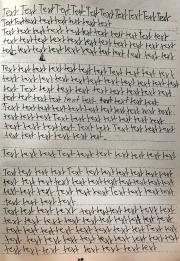 Text Text Text Text Text Text Text Text Text
Text text text text text text text
Text text text text text text text text text
text text text text text text text text text
text text text text text text text text text

Text text text text text text text text text
text text text text text text text text text
text Text text text text text text text text
text text text text text text text text
Text text text text text text text text text
text text text text text text text text
text text text text Text text text text text
text text text text text text

Text text Text text text text text text text

Text text text text Text text text text text
text text text text text text text text text
text text text text Text text text text text
text text text text
Text text text text text text text text text
text text text text text text text text text
text text text text text text text text text
text text text text text text text text text
text text text text text text text text